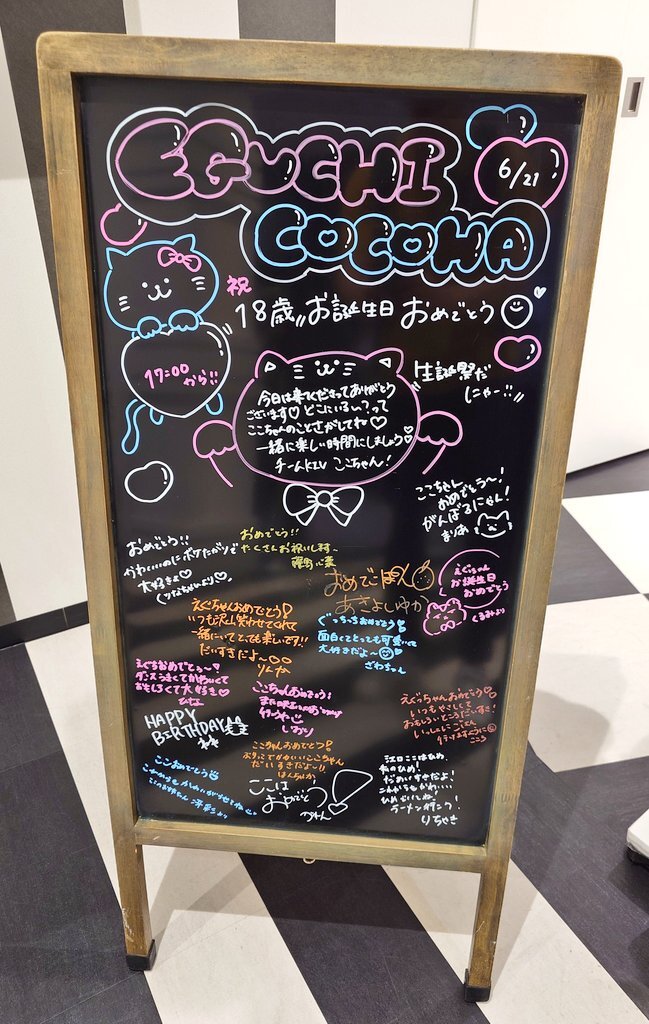 EGUCHI
COCOHA
6/21
祝
18歳 お誕生日 おめでとう
17:00
から!!
生誕祭だ
にゃー!!
今日は来てくださってありがとう
ございます♡ どこにいるの?って
ここちゃんのことさがしてね♡
一緒に楽しい時間にしましょう♡
チームKIV ここちゃん!
ここちゃん
おめでとう〜!
がんばるにゃん!
まりあ
おめでとう!!
かわいいのにボケたがりで
大好きよ♡
(りなちゃんより)♡
おめでとう!!
たくさんお祝いし村〜
おめでぽん
あさよしゆか
えぐちゃん
お誕生日
おめでとう
くるみより
えぐちゃんおめでとう!
いつも沢山笑わせてくれて
一緒にいてとても楽しいです!!
だいすきだよ〜
りんか
ぐっちっちおめでとう!
面白くてとっても可愛いくて
大好きだよ〜
ざわちゃん
えぐちおめでとう〜?
ダンスうまくてかわいくて
おもしろくて大好き♡
ひなな
ここちゃんおめでとう!
しおり
えぐっちゃんおめでとう♡
いつもやさしくて
おもしろいところだいすき!
いっしょにごはん
こころ
HAPPY
BIRTHDAY
ここちゃんおめでとう!
おりってでかわいいここちゃん
だいすきだよ〜!!
はんちゃんか
ここおめでとう
ここは
おめでとう!
かれん
江口ここはひめ、
私のひめ!
だぁいすきだよ!
これからもかわいい
ひめでいてね!
ラーメン行こう!
りちゃき